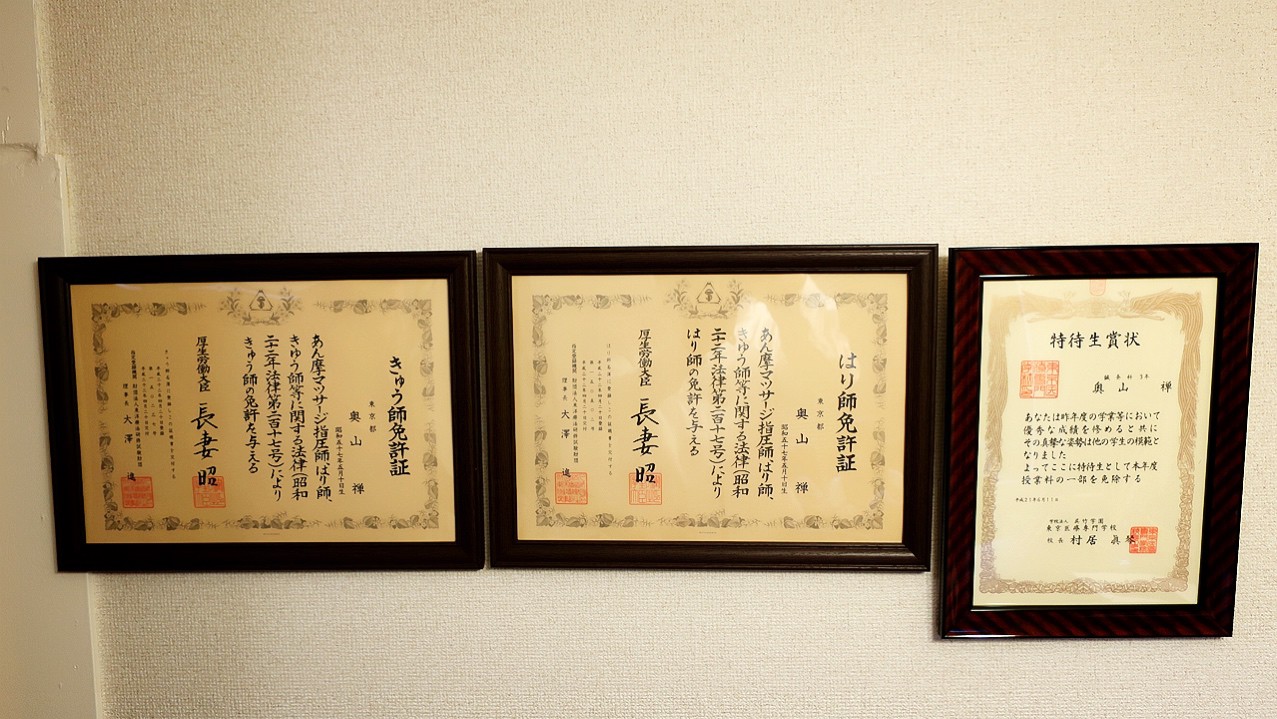 きゅう師免許証
東京都
奥山 禅
昭和五十七年五月十日生
あん摩マツサージ指圧師、はり師、
きゆう師等に関する法律(昭和
二十二年法律第二百十七号)により
きゆう師の免許を与える
厚生労働大臣 長妻昭
理事長 大澤 進
はり師免許証
東京都
奥山 禅
昭和五十七年五月十日生
あん摩マツサージ指圧師、はり師、
きゆう師等に関する法律(昭和
二十二年法律第二百十七号)により
はり師の免許を与える
厚生労働大臣 長妻昭
理事長 大澤
特待生賞状
鍼灸科 3年
奥山 禅
あなたは昨年度の学業等において
優秀な成績を修めると共に
その真摯な姿勢は他の学生の模範と
なりました
よってここに特待生として本年度
授業料の一部を免除する
平成21年6月11日
学校法人 呉竹学園
東京医療専門学校
校長 村居 眞琴